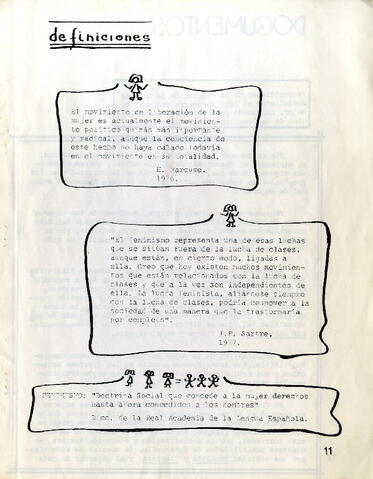 definiciones
El movimiento de liberación de la
mujer es actualmente el movimien-
to político quizás más importante
y radical, aunque la conciencia de
este hecho no haya calado todavía
en el movimiento en su totalidad.
H. Marcuse.
1976.
"El feminismo representa una de esas luchas
que se sitúan fuera de la lucha de clases,
aunque están, en cierto modo, ligadas a
ella. Creo que hoy existen muchos movimien-
tos que están relacionados con la lucha de
clases y que a la vez son independientes de
ella. La lucha feminista, aliándose siempre
con la lucha de clases, podría conmover a la
sociedad de una manera que la trastornaría
por completo".
J.P. Sartre.
1977.
FEMINISMO: "Doctrina Social que concede a la mujer derechos
hasta ahora concedidos a los hombres"
Dicc. de la Real Academia de la Lengua Española.
11